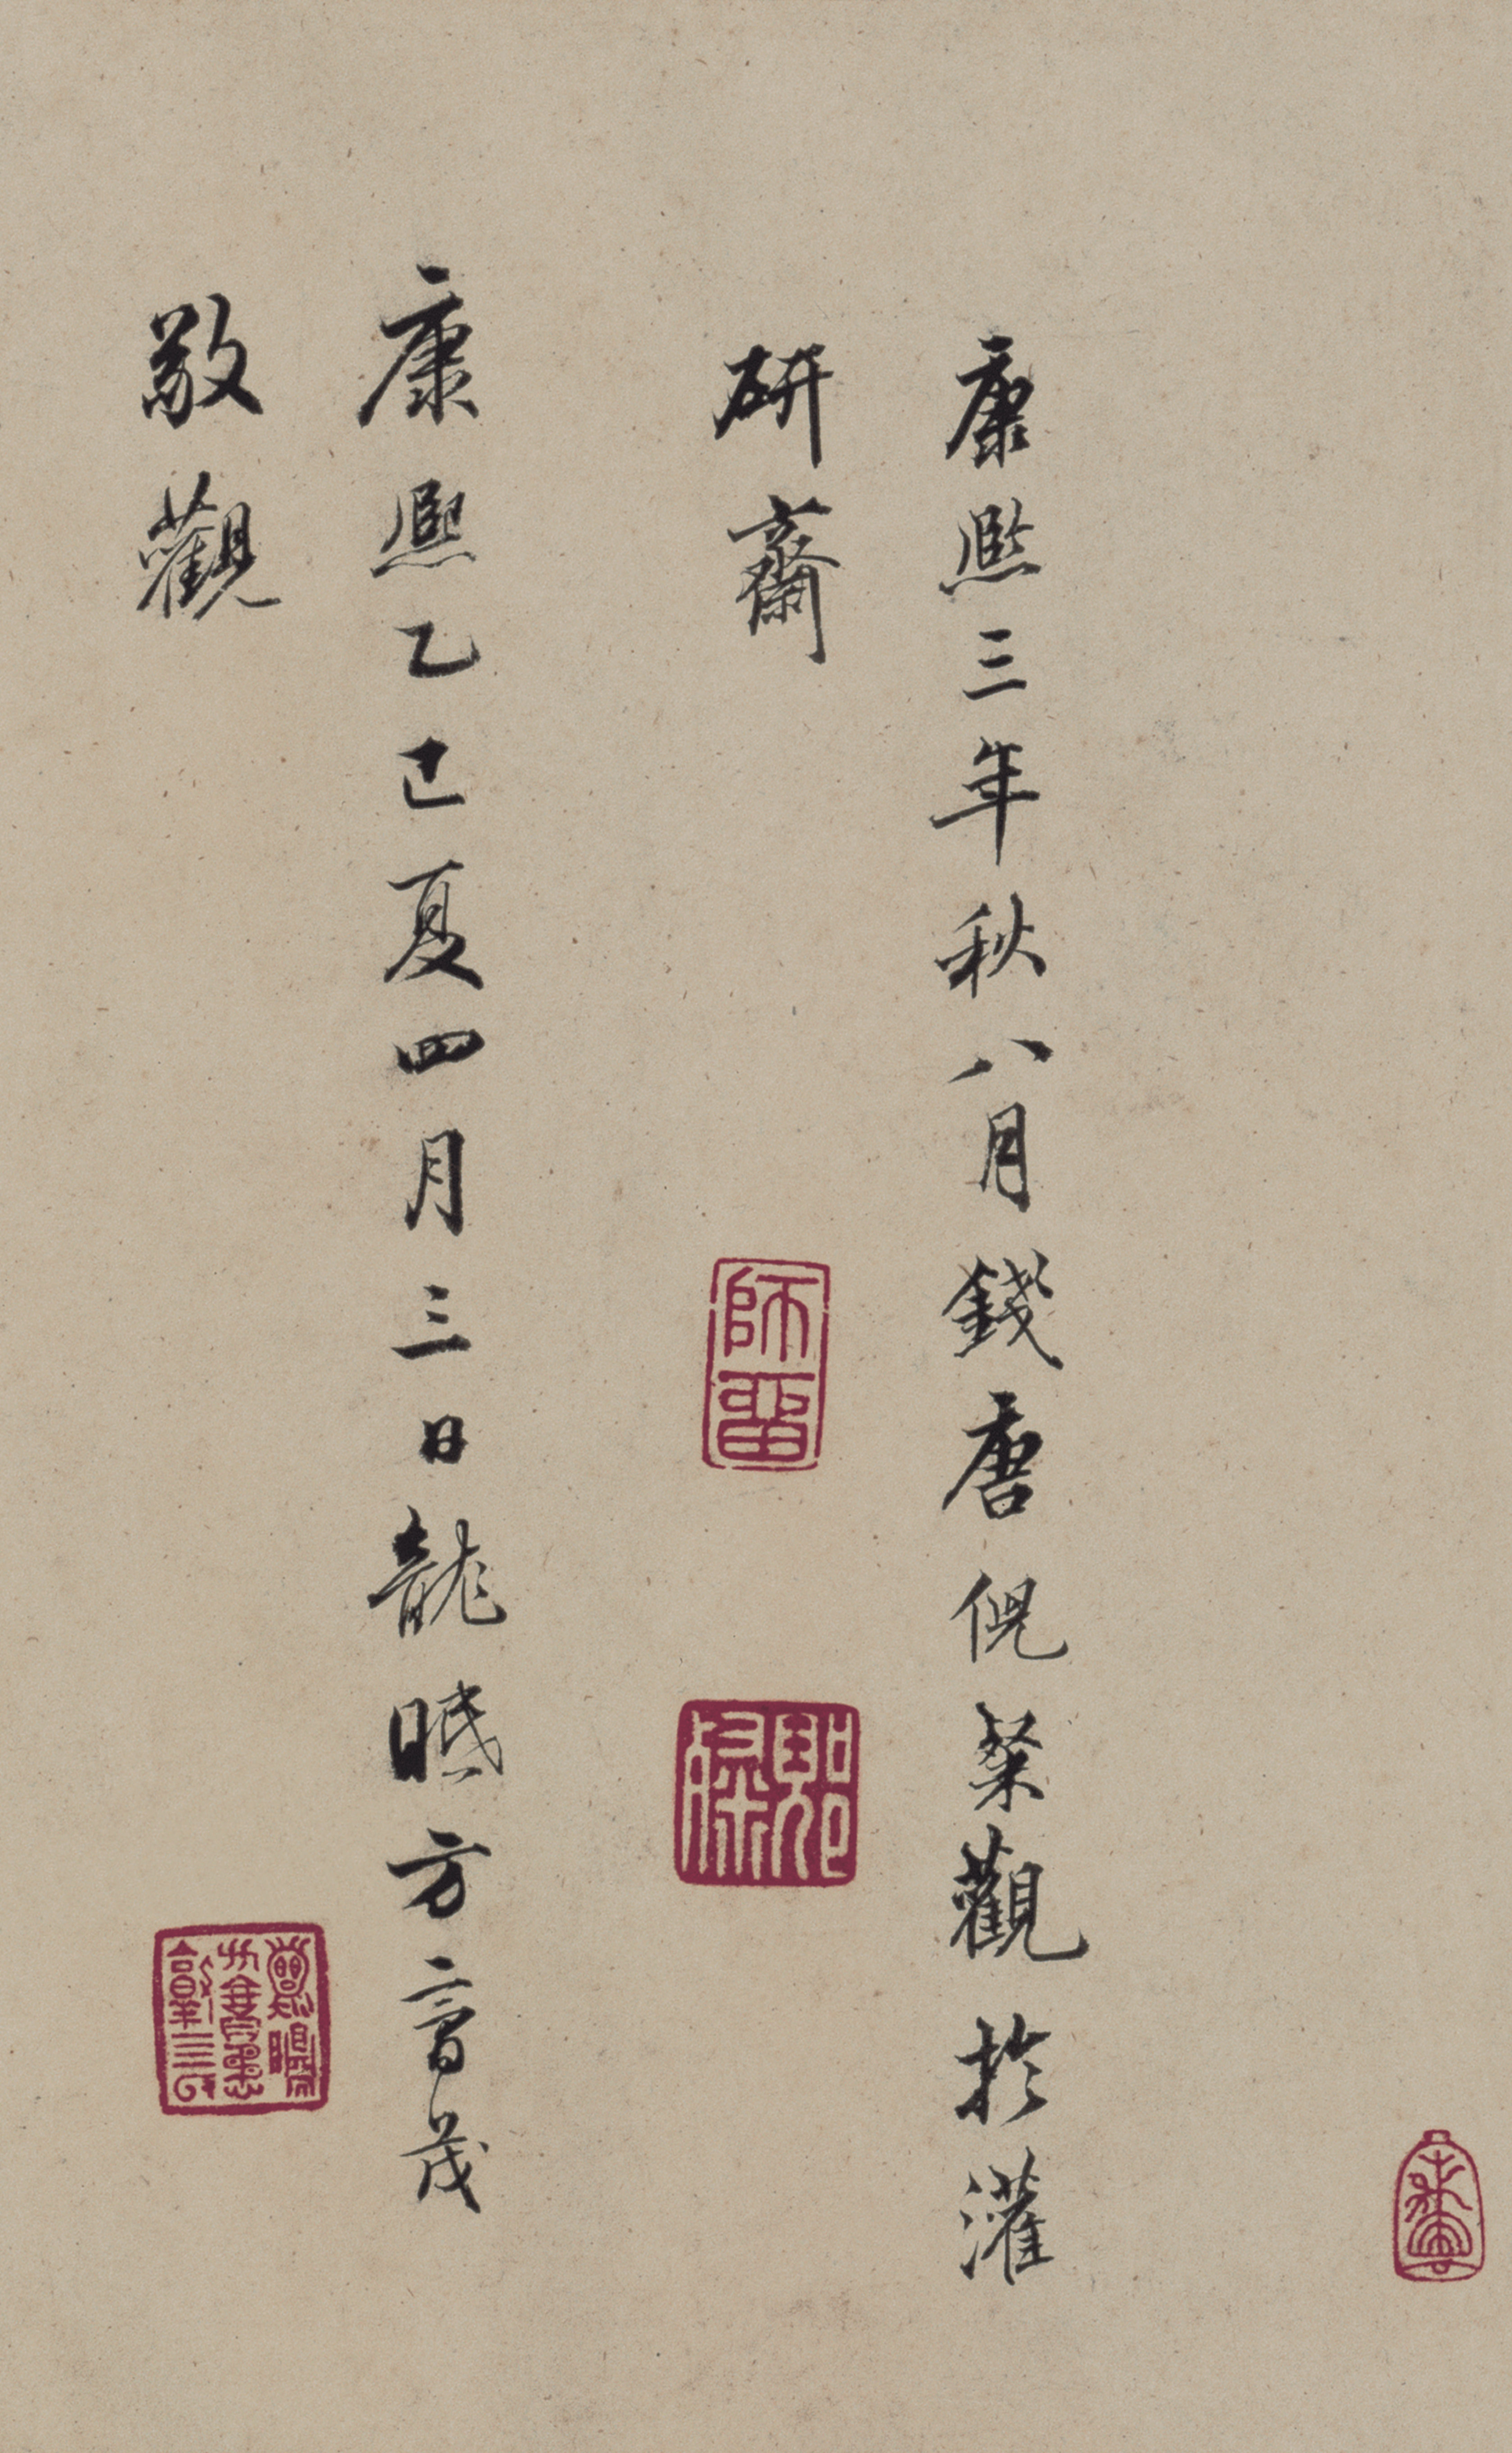 康熙三年秋八月錢唐倪粲觀於灌
研齋
師留
康熙乙巳夏四月三日龍眠方膏茂
敬觀